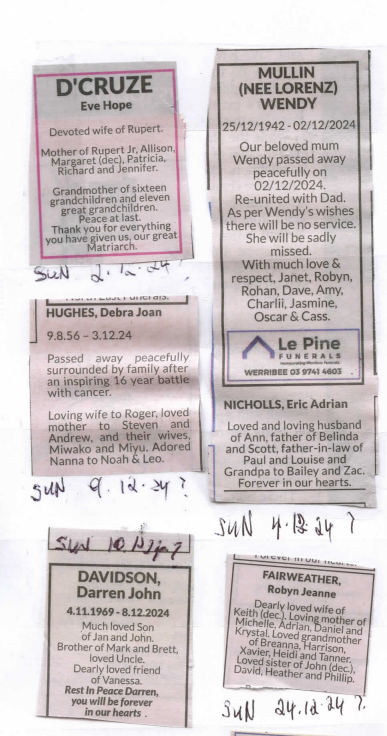 D'CRUZE
Eve Hope
Devoted wife of Rupert.
Mother of Rupert Jr, Allison,
Margaret (dec), Patricia,
Richard and Jennifer.
Grandmother of sixteen
grandchildren and eleven
great grandchildren.
Peace at last.
Thank you for everything
you have given us, our great
Matriarch.
SUN 2.12.24?
North East Funerals.
HUGHES, Debra Joan
9.8.56 – 3.12.24
Passed away peacefully
surrounded by family after
an inspiring 16 year battle
with cancer.
Loving wife to Roger, loved
mother to Steven and
Andrew, and their wives,
Miwako and Miyu. Adored
Nanna to Noah & Leo.
SUN 9.12.24?
SUN 10.12.24?
DAVIDSON,
Darren John
4.11.1969 - 8.12.2024
Much loved Son
of Jan and John.
Brother of Mark and Brett,
loved Uncle.
Dearly loved friend
of Vanessa.
Rest In Peace Darren,
you will be forever
in our hearts .
MULLIN
(NEE LORENZ)
WENDY
25/12/1942 - 02/12/2024
Our beloved mum
Wendy passed away
peacefully on
02/12/2024.
Re-united with Dad.
As per Wendy's wishes
there will be no service.
She will be sadly
missed.
With much love &
respect, Janet, Robyn,
Rohan, Dave, Amy,
Charlii, Jasmine,
Oscar & Cass.
Le Pine
FUNERALS
WERRIBEE 03 9741 4603
NICHOLLS, Eric Adrian
Loved and loving husband
of Ann, father of Belinda
and Scott, father-in-law of
Paul and Louise and
Grandpa to Bailey and Zac.
Forever in our hearts.
SUN 4.12.24?
Forever in our hearts.
FAIRWEATHER,
Robyn Jeanne
Dearly loved wife of
Keith (dec.). Loving mother of
Michelle, Adrian, Daniel and
Krystal. Loved grandmother
of Breanna, Harrison,
Xavier, Heidi and Tanner.
Loved sister of John (dec.),
David, Heather and Phillip.
SUN 24.12.24?